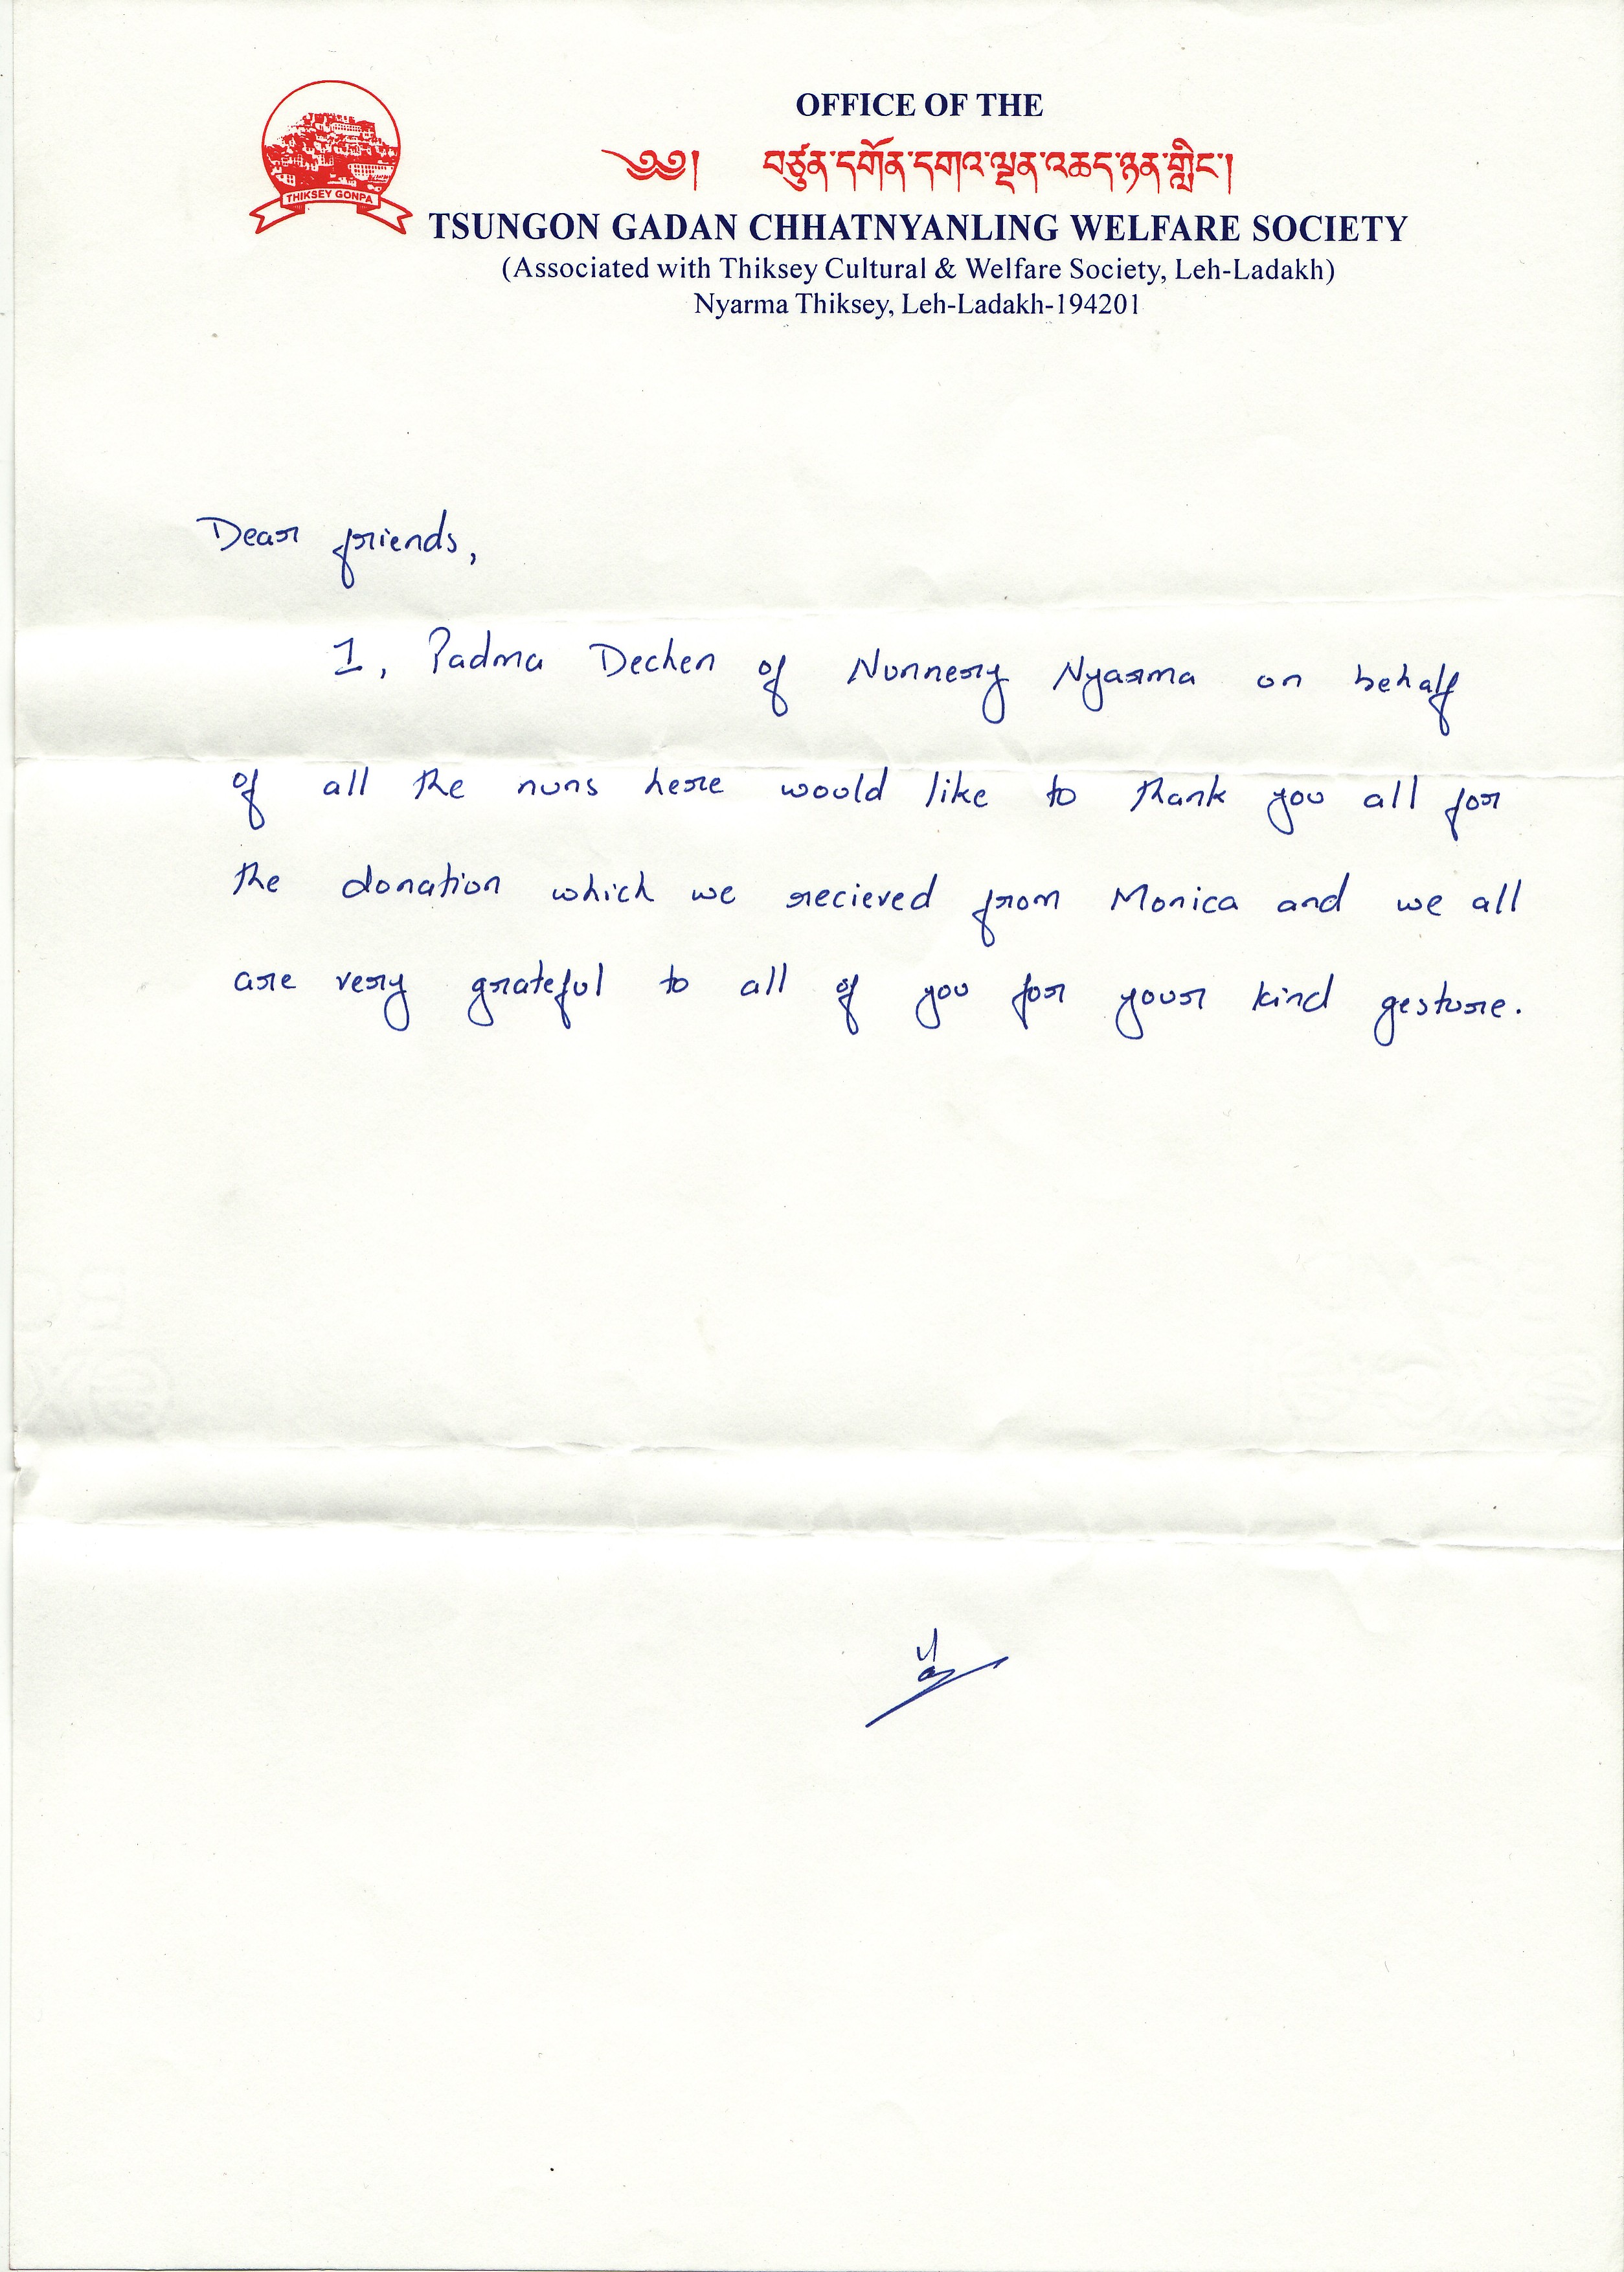 OFFICE OF THE
༄༅། བཙུན་དགོན་དགའ་ལྡན་འཆད་ཉན་གླིང་།
THIKSEY GONPA
TSUNGON GADAN CHHATNYANLING WELFARE SOCIETY
(Associated with Thiksey Cultural & Welfare Society, Leh-Ladakh)
Nyarma Thiksey, Leh-Ladakh-194201
Dear friends,
I, Padma Dechen of Nunnery Nyarma on behalf
of all the nuns here would like to thank you all for
the donation which we recieved from Monica and we all
are very grateful to all of you for your kind gesture.